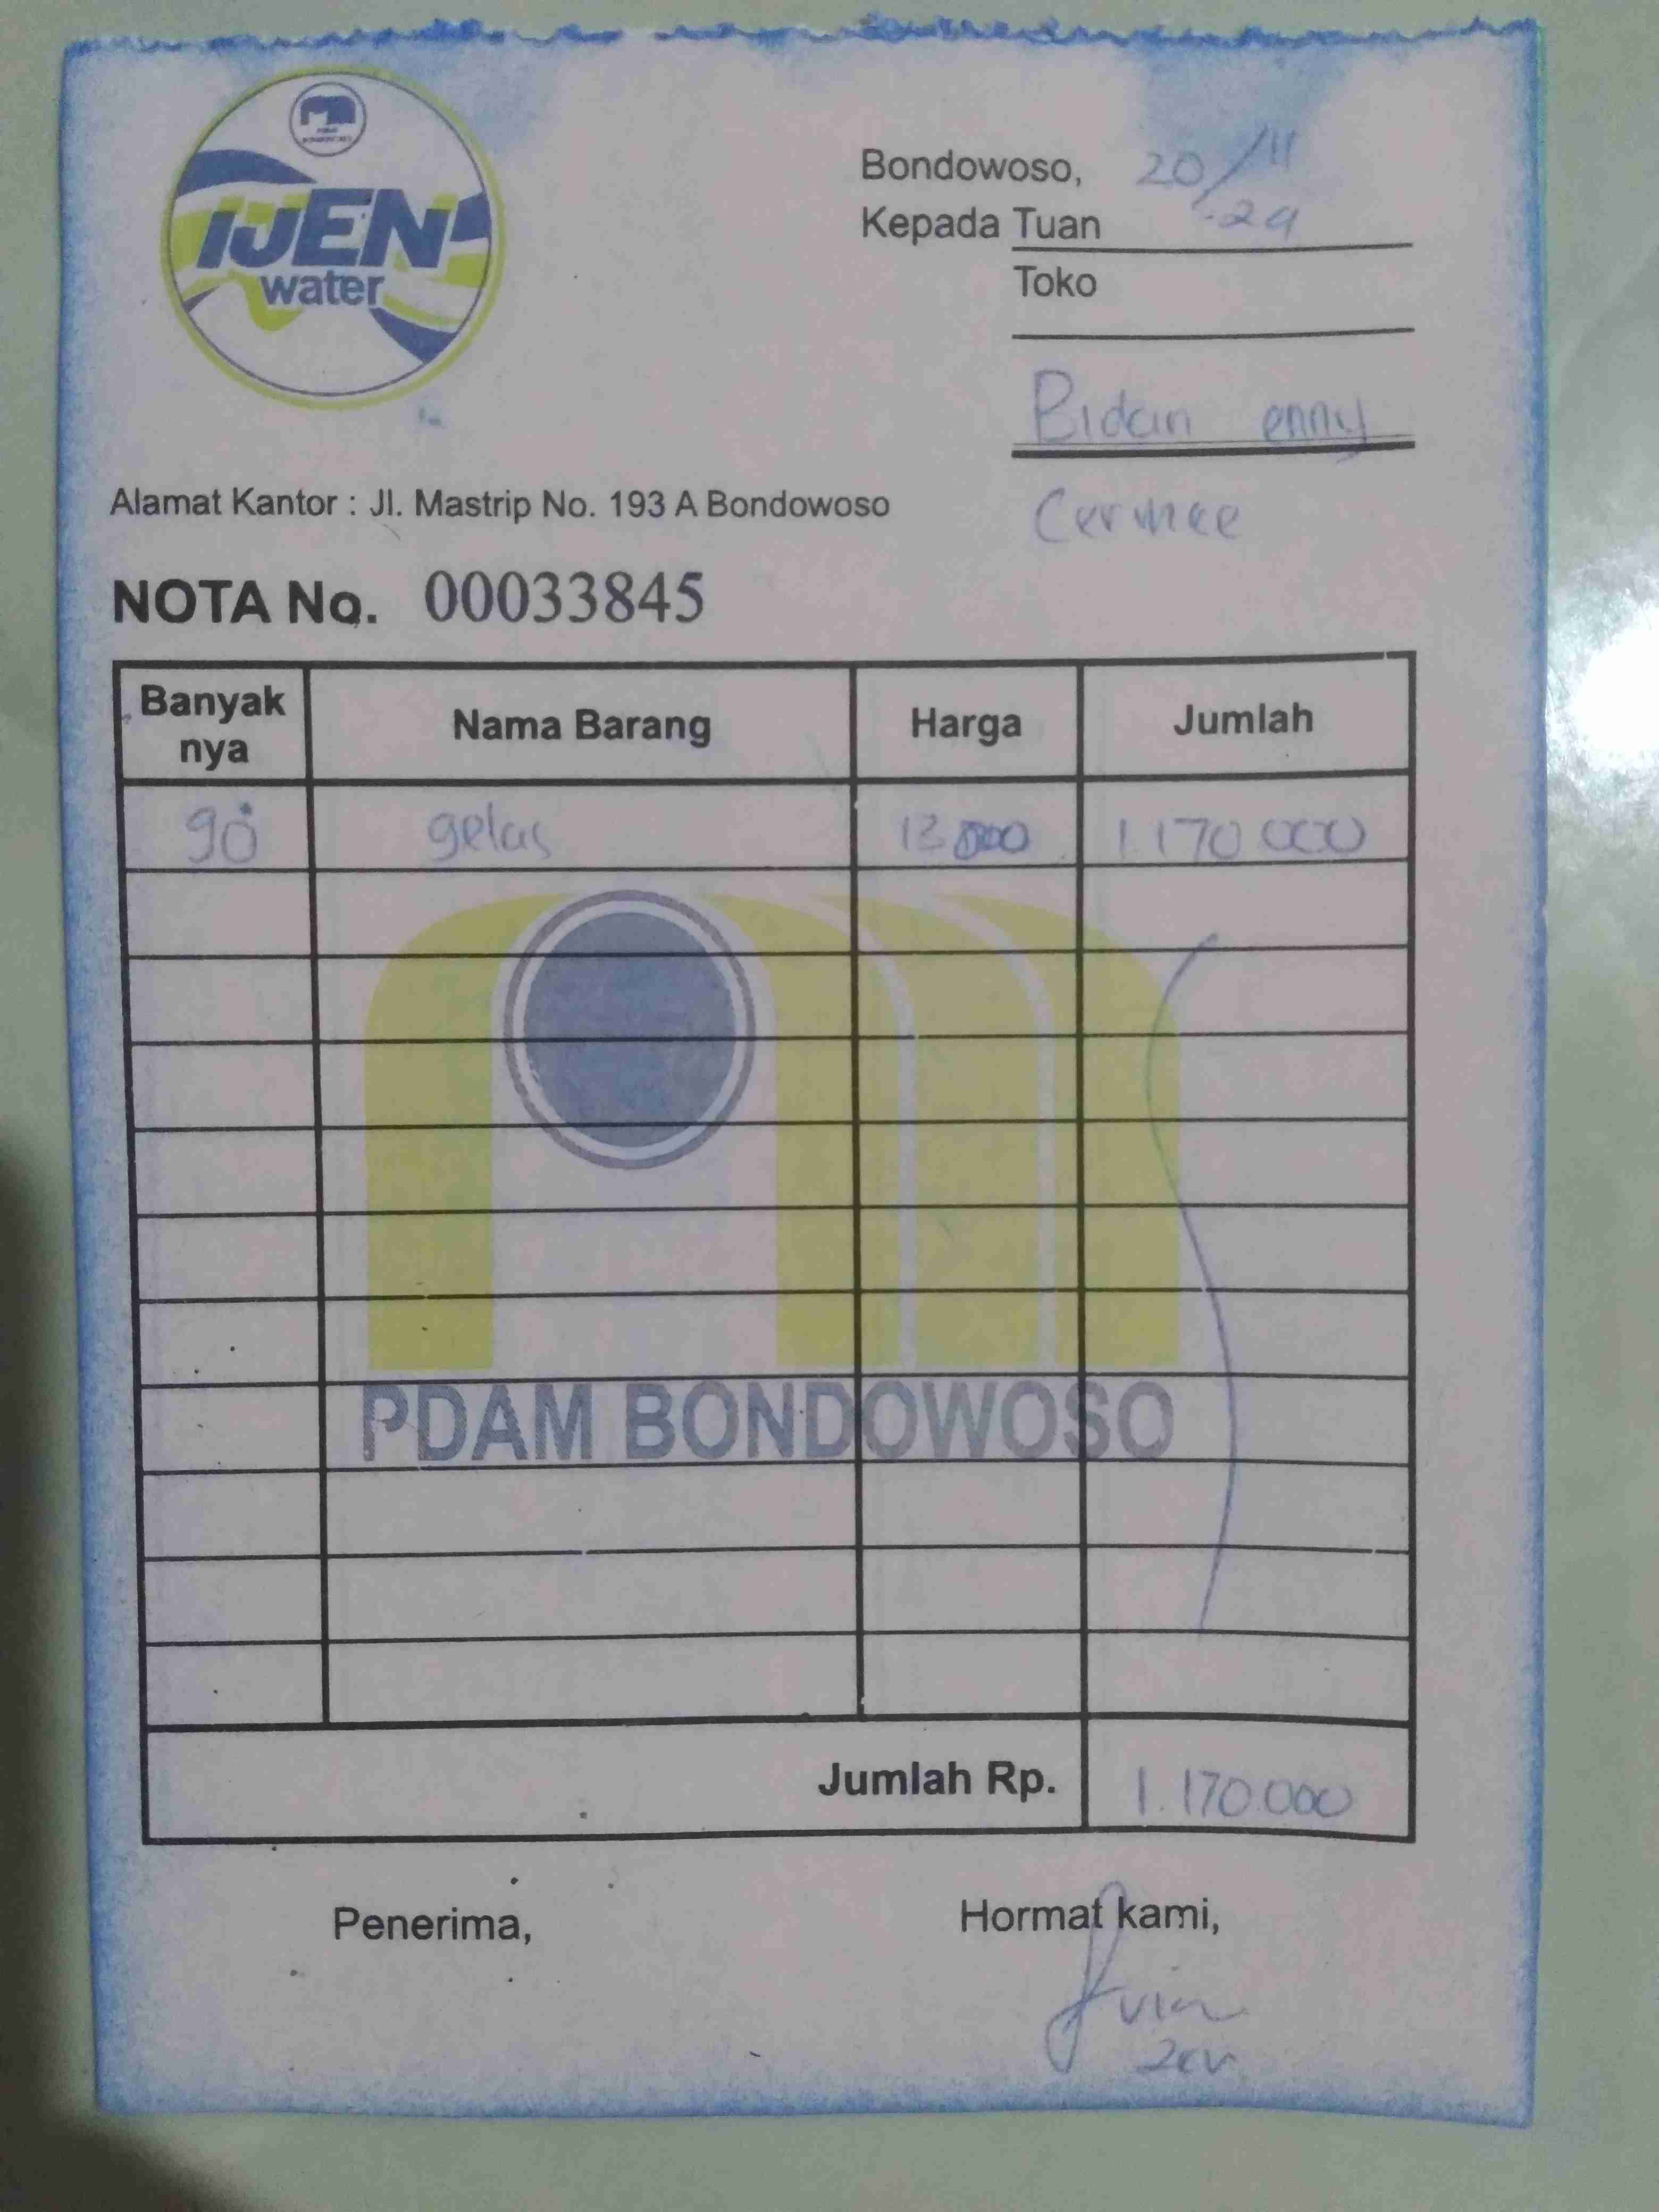 IJEN
water
Bondowoso, 20/11
Kepada Tuan -24
Toko
Bidan enny
Cermee
Alamat Kantor : Jl. Mastrip No. 193 A Bondowoso
NOTA No. 00033845
Banyak nya Nama Barang Harga Jumlah
90 gelas 13000 1.170 000
PDAM BONDOWOSO
Jumlah Rp. 1.170.000
Penerima, Hormat kami,